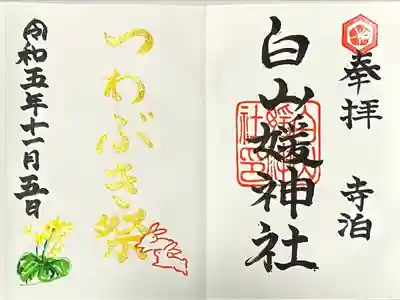 奉拝
寺泊
白山媛神社
つわぶき祭
令和五年十一月五日